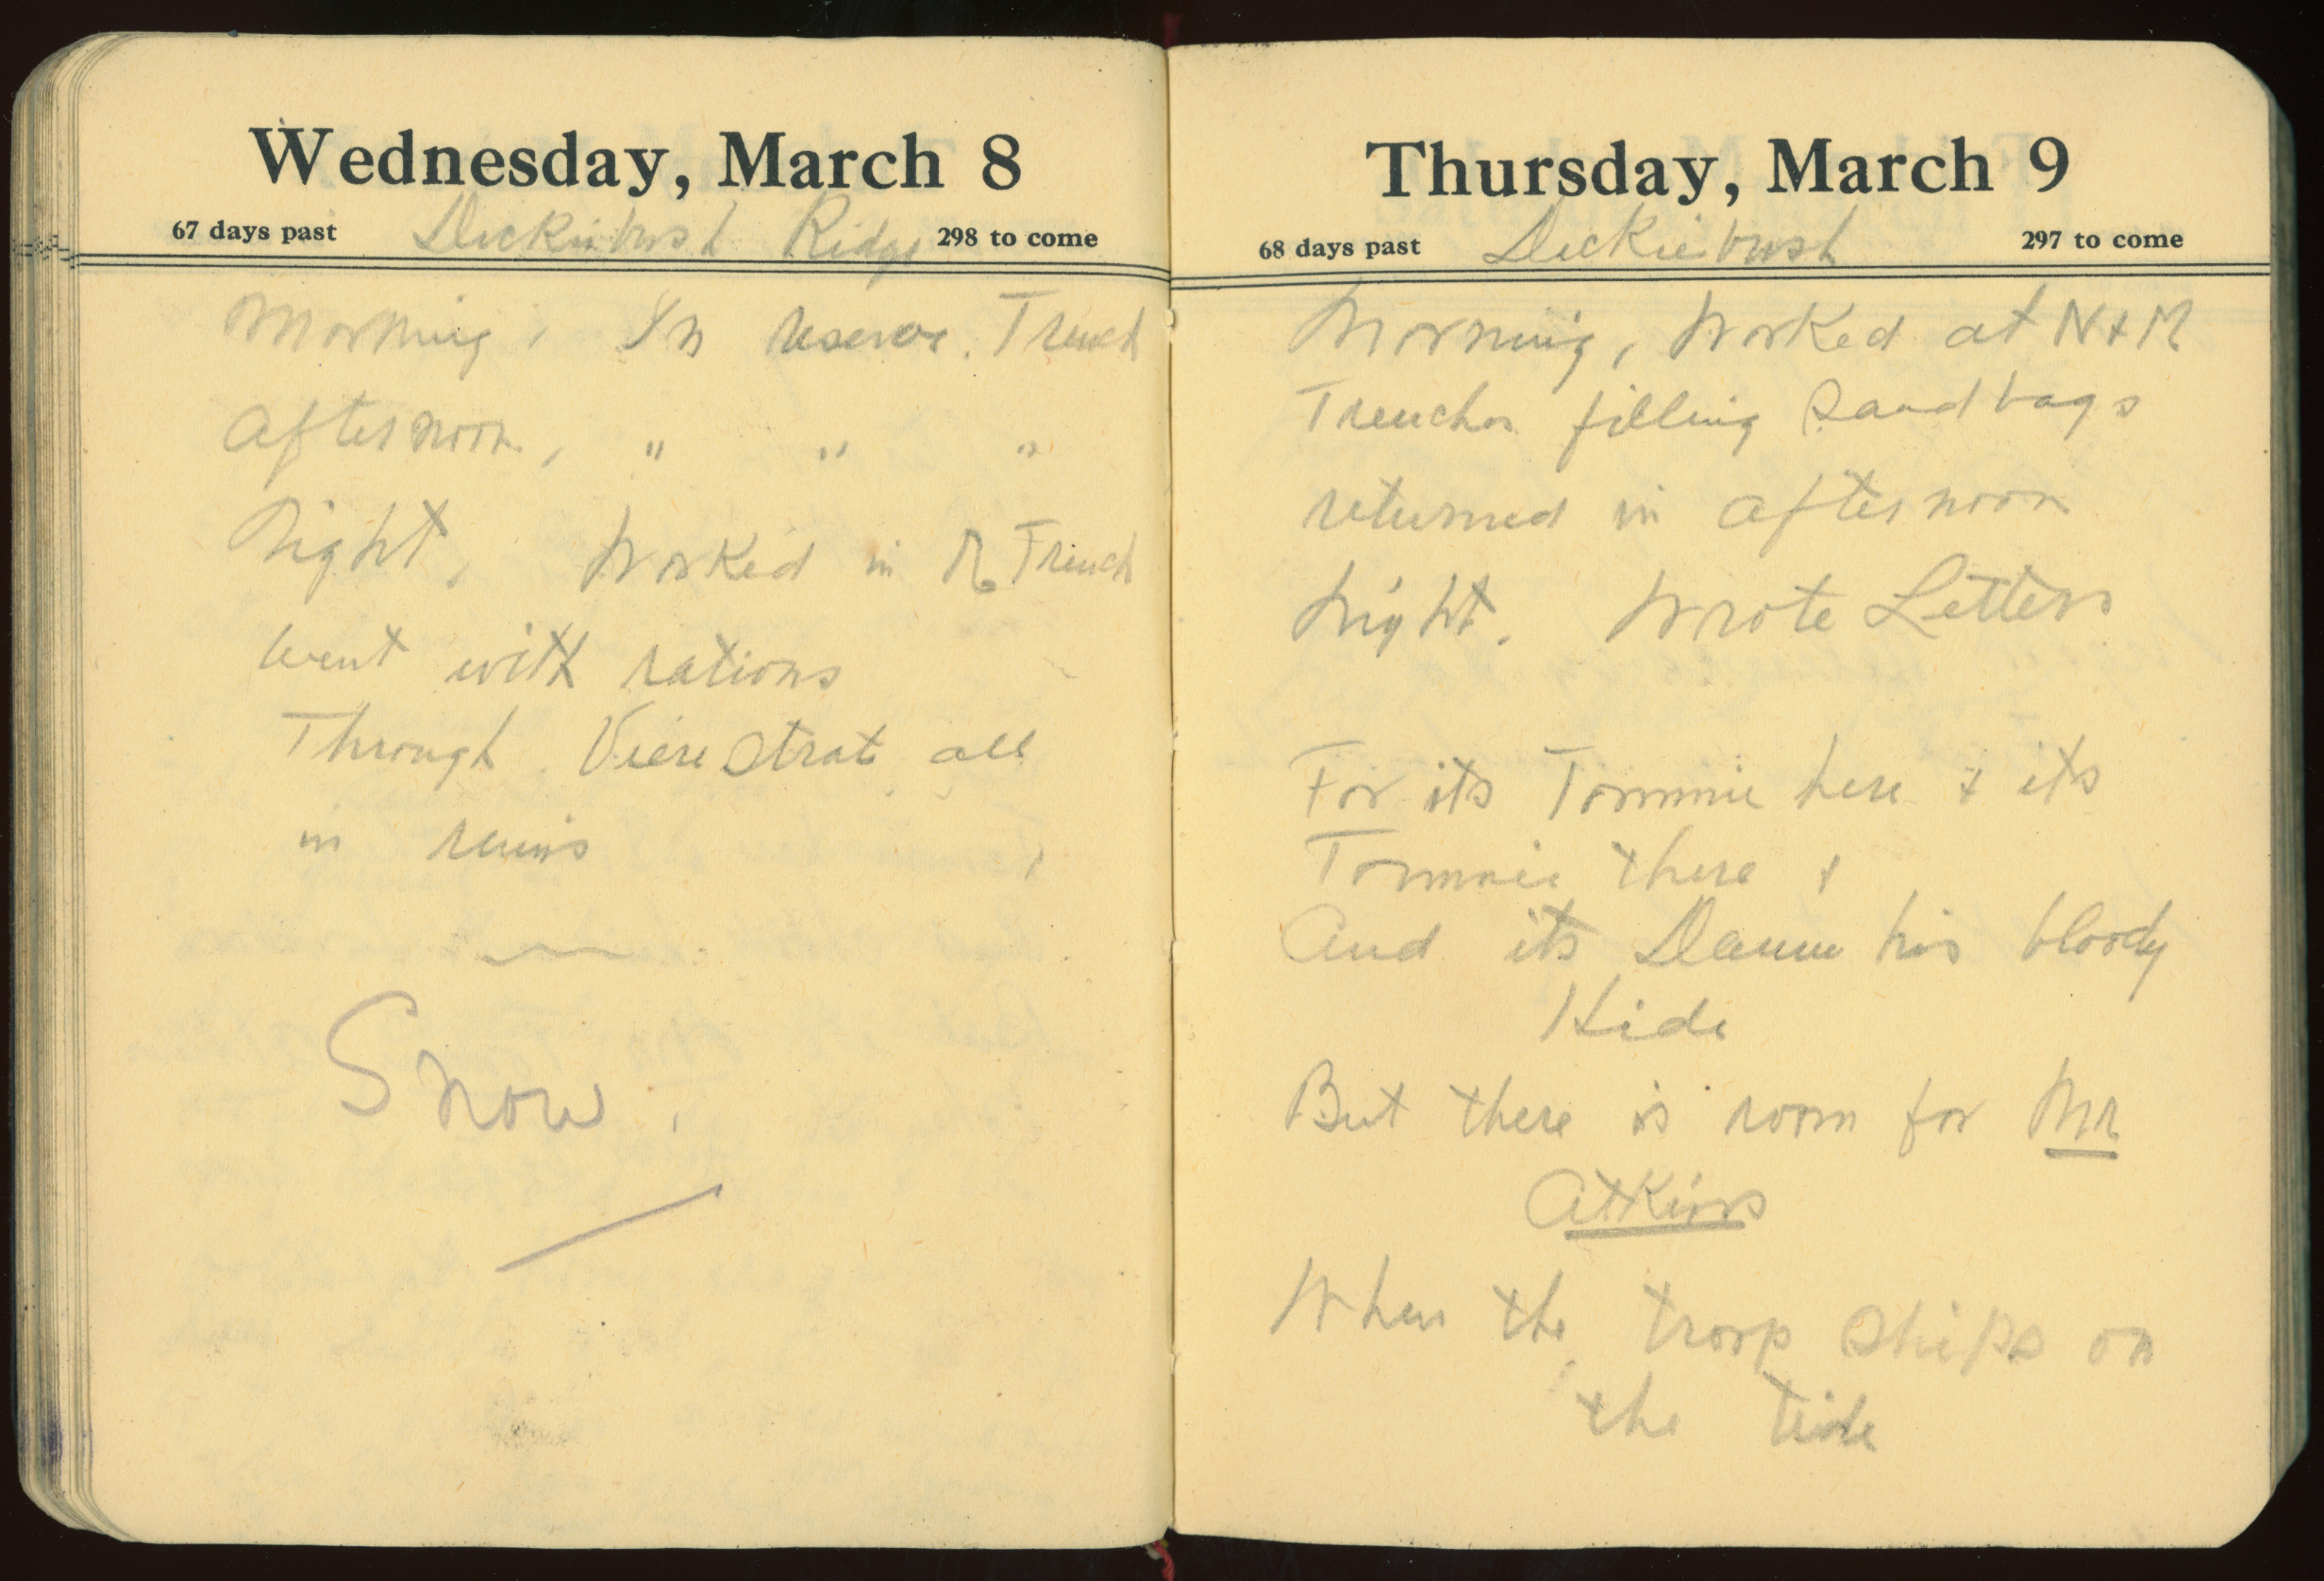 Wednesday, March 8
67 days past Dickiebush Ridge 298 to come
Morning, In reserve. Trench
Afternoon, " " "
Night, Worked in Trench
went with rations
Through Vierestrat all
in ruins
Snow.
Thursday, March 9
68 days past Dickiebush 297 to come
Morning, Worked at N + M
Trenches filling Sand bags
returned in afternoon
Night. Wrote Letters
For its Tommie here + its
Tommie there +
And its Damn his bloody
Hide
But there is room for Mr
Atkins
When the troop ships on
the tide